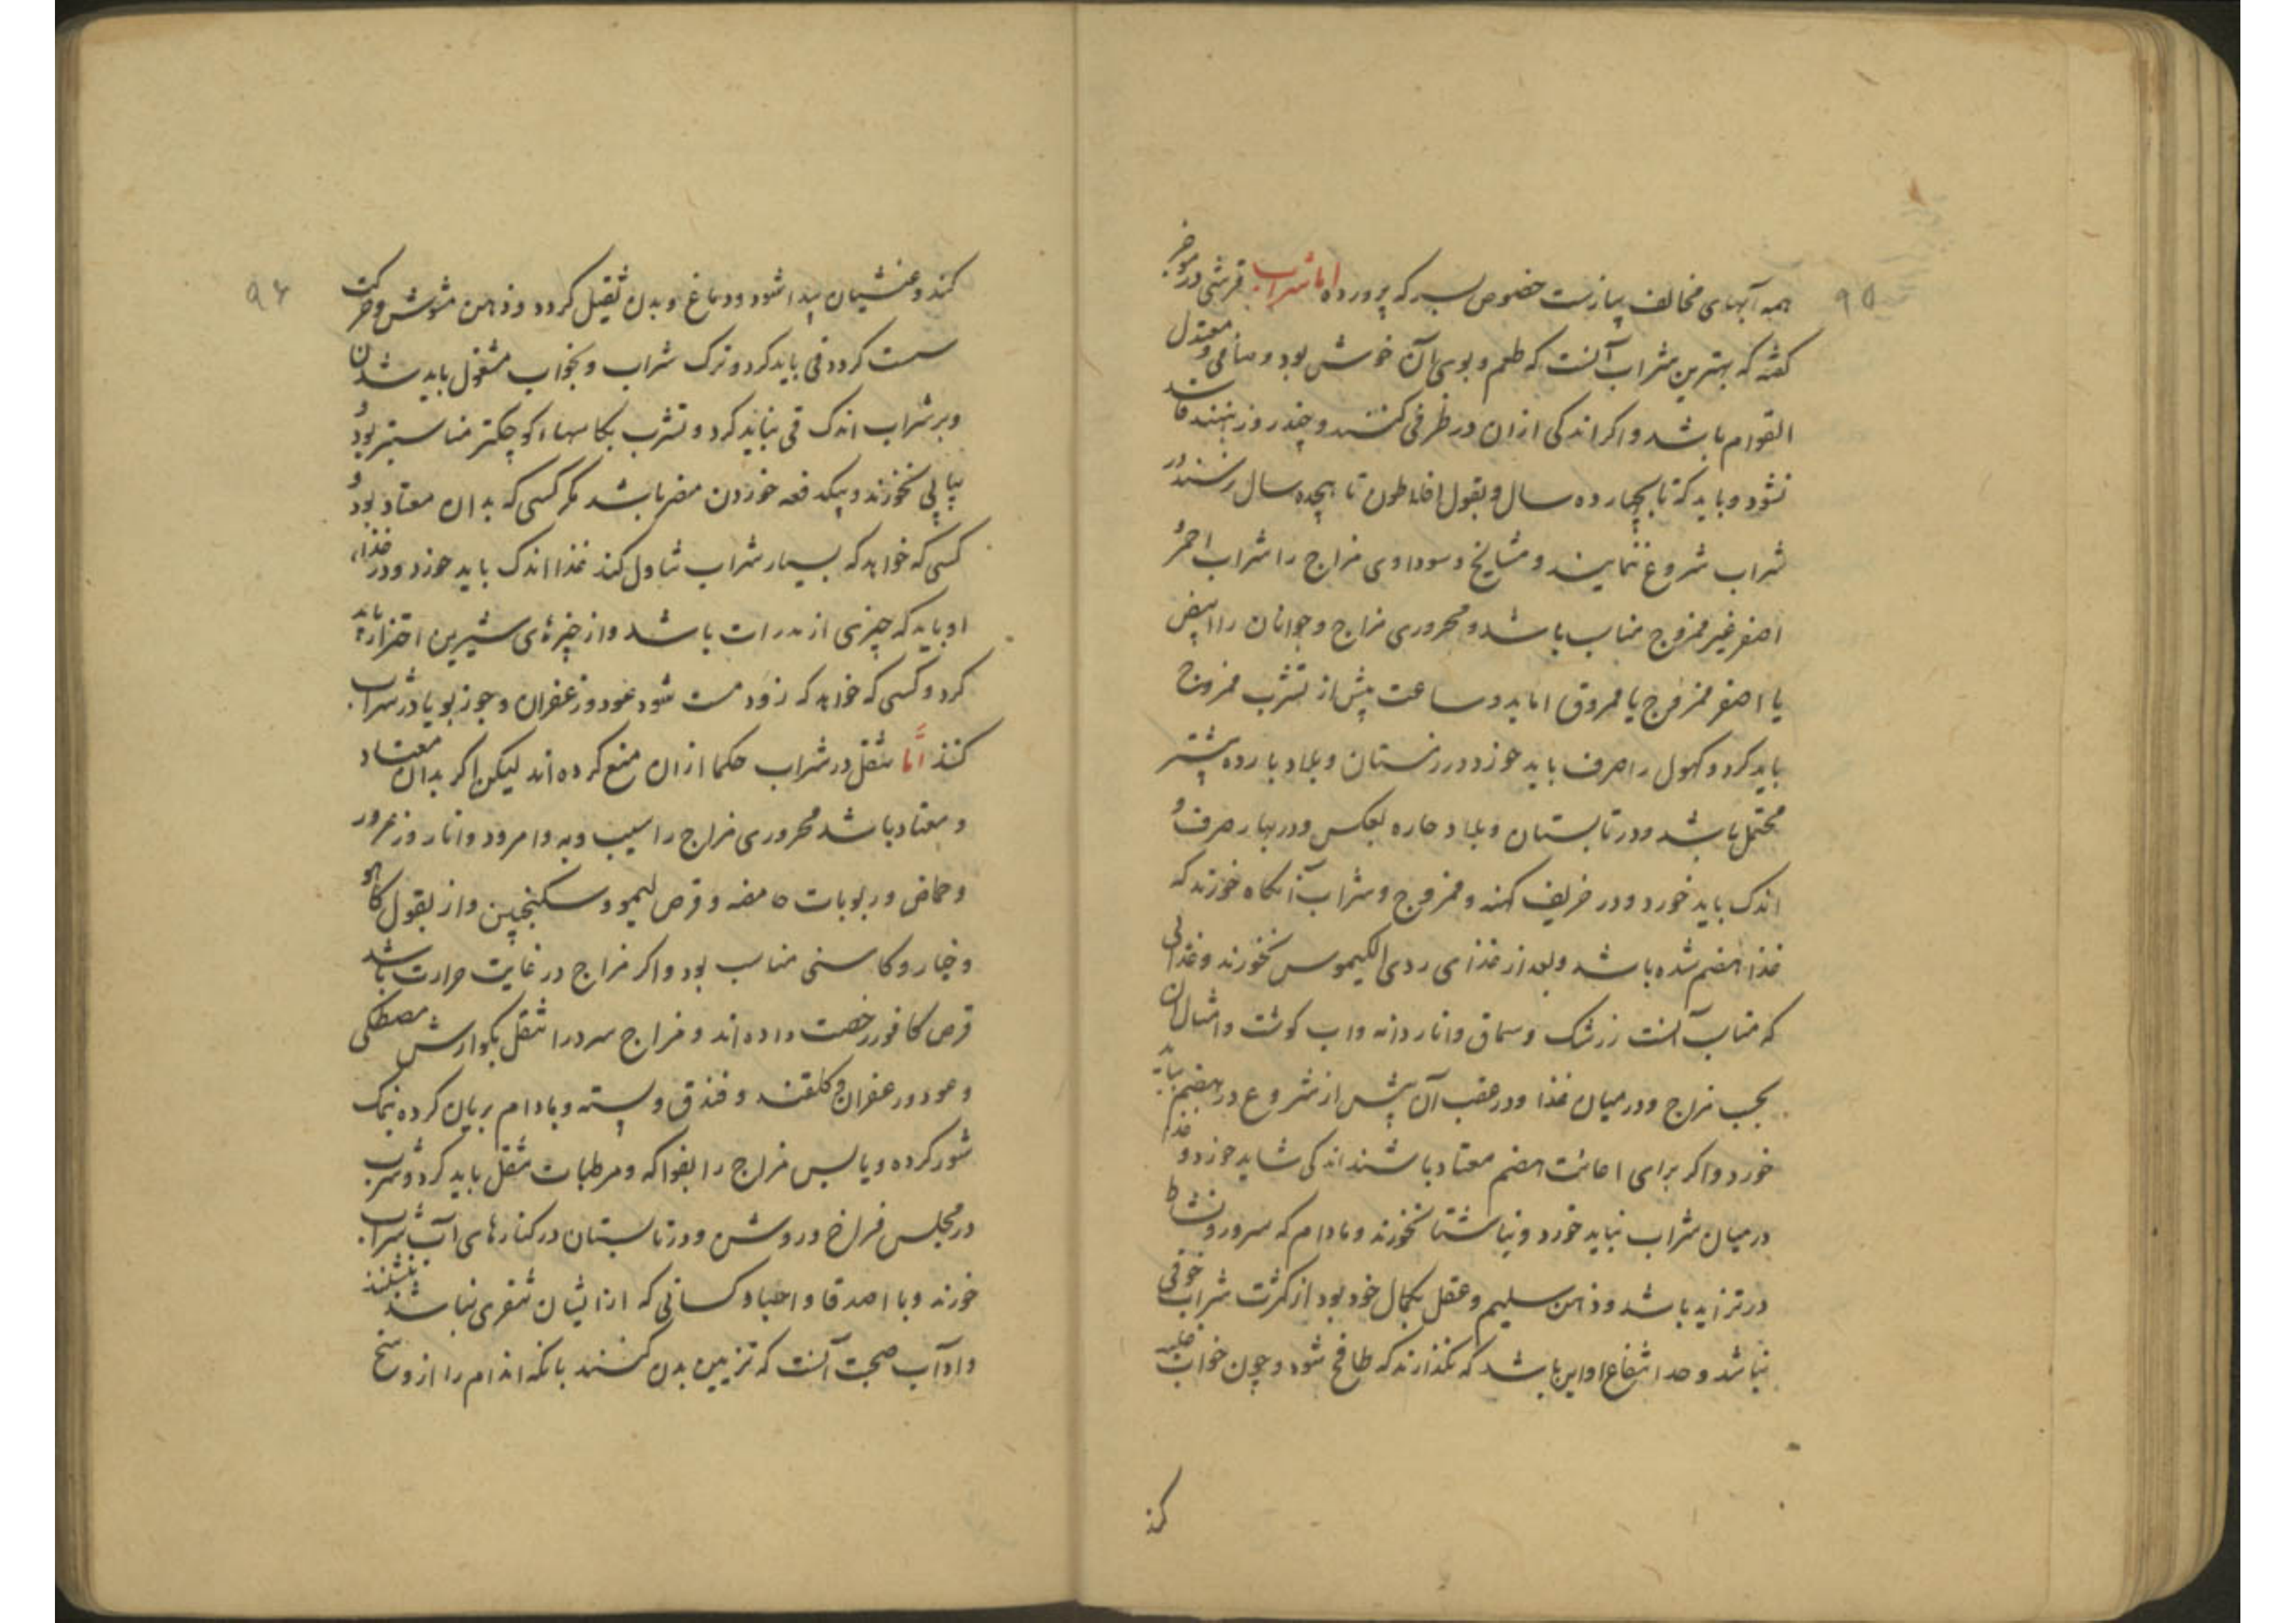 ۹۵
همه آبهای مخالف پیازست خصوص بسرکه پرورده اما شراب قرشی در موجز
گفته که بهترین شراب آنست که طعم و بوی آن خوش بود و صافی و معتدل
القوام باشد و اگر اندکی ازان در ظرفی کنند و چند روز بنهند فاسد
نشود و باید که تا بچهارده سال و بقول افلاطون تا هیجده سال نرسند در
شراب شروع ننمایند و مشایخ و سوداوی مزاج را شراب احمر و
اصفر غیر ممزوج مناسب باشد و محروری مزاج و جوانان را ابیض
یا اصفر ممزوج یا مروق اما بدو ساعت پیش از تشرب ممزوج
باید کرد و کهول را صرف باید خورد و در زمستان و بلاد بارده بیشتر
محتمل باشد و در تابستان و بلاد حاره بعکس و در بهار صرف و
اندک باید خورد و در خریف کهنه و ممزوج و شراب آنگاه خورند که
غذا هضم شده باشد و بعد از غذای ردی الکیموس نخورند و غذائی
که مناسب آنست زرشک و سماق و انار دانه و اب گوشت و امثال ان
بحسب مزاج و در میان غذا و در عقب آن پیش از شروع در هضم نباید
خورد و اگر برای اعانت هضم معتاد باشند اندکی شاید خورد و
در میان شراب نباید خورد و ناشتا نخورند و مادام که سرور و نشاط
در تزاید باشد و ذهن سلیم و عقل بکمال خود بود از کثرت شراب خوفی
نباشد و حد انتفاع او این باشد که نگذارند که طافح شود و چون خواب غلبه
کند
۹۶
کند و غشیان پیدا شود و دماغ و بدن ثقیل گردد و ذهن مشوش و حرکت
سست گردد قی باید کرد و ترک شراب و بخواب مشغول باید شدن
و بر شراب اندک قی نباید کرد و تشرب بکاسهاء کوچکتر مناسبتر بود و
پیاپی نخورند و بیکدفعه خوردن مضر باشد مگر کسی که بدان معتاد بود و
کسی که خواهد که بسیار شراب تناول کند غذا اندک باید خورد و در غذاء
او باید که چیزی از مدرات باشد و از چیزهای شیرین احتراز باید
کرد و کسی که خواهد که زود مست شود عود و زعفران و جوز بویا در شراب
کنند امّا تنقل در شراب حکما ازان منع کرده اند لیکن اگر بدان معتاد
و معتاد باشد محروری مزاج را سیب و به و امرود و انار و زعرور
و حماض و ربوبات حامضه و قرص لیمو و سکنجبین و از بقول کاهو
و خیار و کاسنی مناسب بود و اگر مزاج در غایت حرارت باشد
قرص کافور رخصت داده اند و مزاج سرد را تنقل بکوارش مصطکی
و عود و زعفران و گلقند و فندق و پسته و بادام بریان کرده نمک
شور کرده و یابس مزاج را بفواکه و مرطبات تنقل باید کرد و شراب
در مجلس فراخ و روشن و در تابستان در کنارهای آب شراب
خورند و با اصدقا و احبا و کسانی که ازایشان تنفری نباشد بنشینند
و اداب صحبت آنست که تزیین بدن کنند بانکه اندام را از وسخ